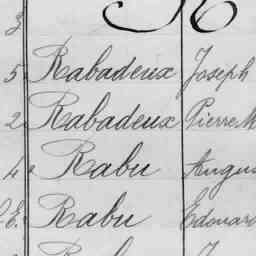 3 R
5 Rabadeux Joseph
2 Rabadeux Pierre M
4 Rabu Augus
E. Rabu Edouard